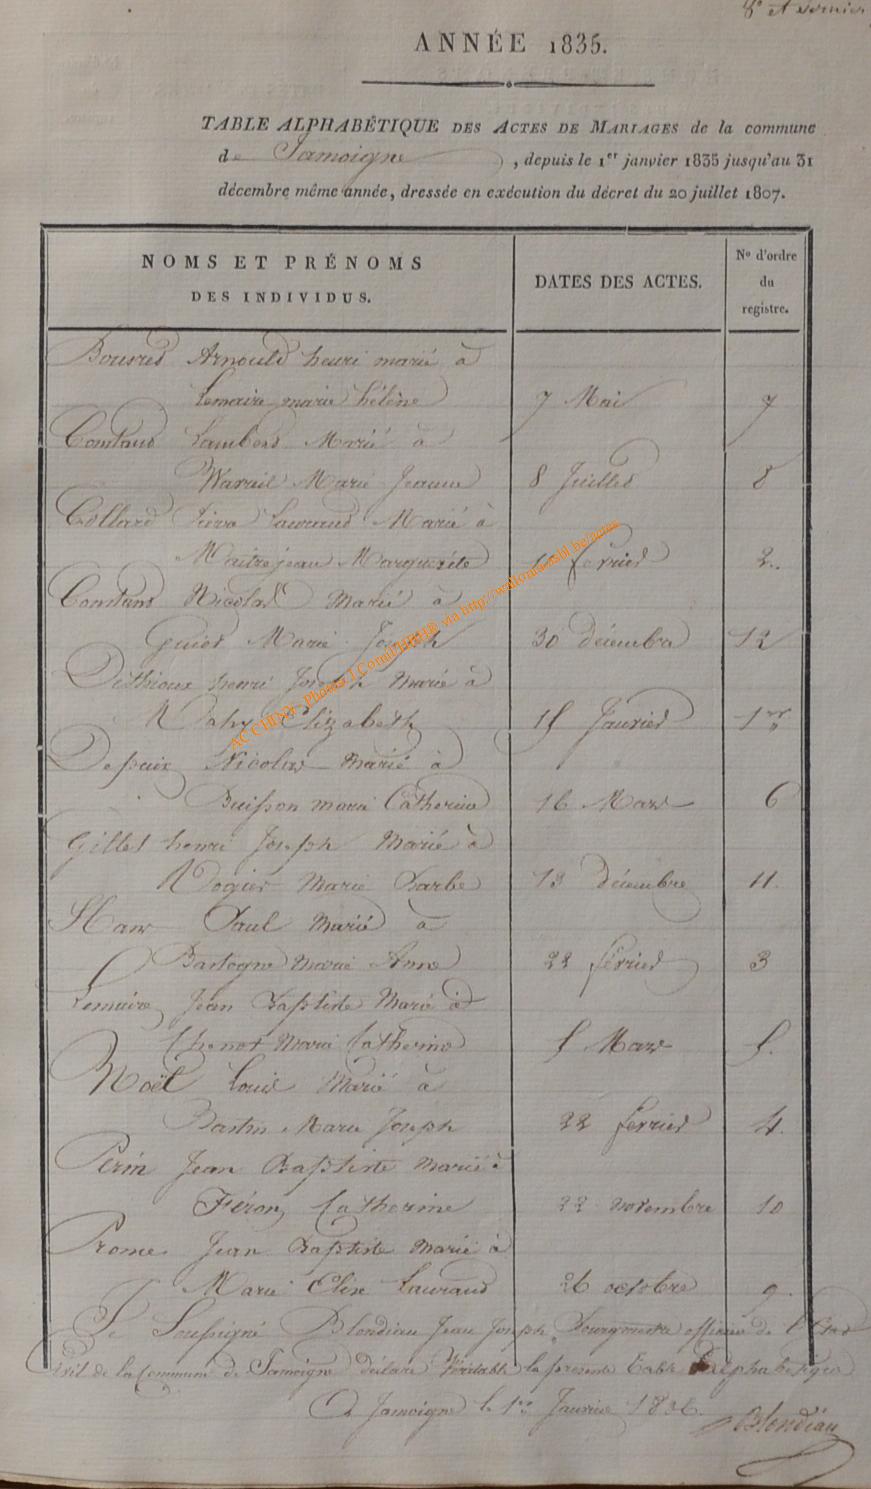 8e et dernier
ANNÉE 1835.
TABLE ALPHABÉTIQUE DES ACTES DE MARIAGES de la commune
de Jamoigne, depuis le 1er janvier 1835 jusqu'au 31
décembre même année, dressée en exécution du décret du 20 juillet 1807.
NOMS ET PRÉNOMS
DES INDIVIDUS.
DATES DES ACTES.
No d'ordre
du
registre.
Arnould henri marié à
Lemaire marie hélène 7 Mai 7
Lambert Marié à
Marie Jeanne 8 Juillet 8
Collard Laurand Marié à
Maitrejean Marguerite février 2.
Nicolas marié à
Marie Joseph 30 décembre 12
Dethioux henri Joseph Marié à
Elizabeth 15 Janvier 1er
Nicolas marié à
Buisson marie Catherine 16 Mars 6
Gillet henri Joseph Marié à
Rogier Marie Barbe 13 décembre 11.
Paul Marié à
Bastogne Marie Anne 22 février 3
Lemaire Jean Baptiste Marié à
Thenot Marie Catherine 5 Mars 5.
Noël Louis Marié à
Bastin Marie Joseph 22 février 4.
Perin Jean Baptiste marié à
Féron Catherine 22 novembre 10
Prome Jean Baptiste marié à
Marie Elise Lauraud 26 octobre 9
Le Soussigné Blondiau Jean Joseph, Bourgmestre officier de l'Etat
Civil de la Commune de Jamoigne déclare Véritable la présente Table Alphabétique
A Jamoigne le 1er Janvier 1836.
Blondiau